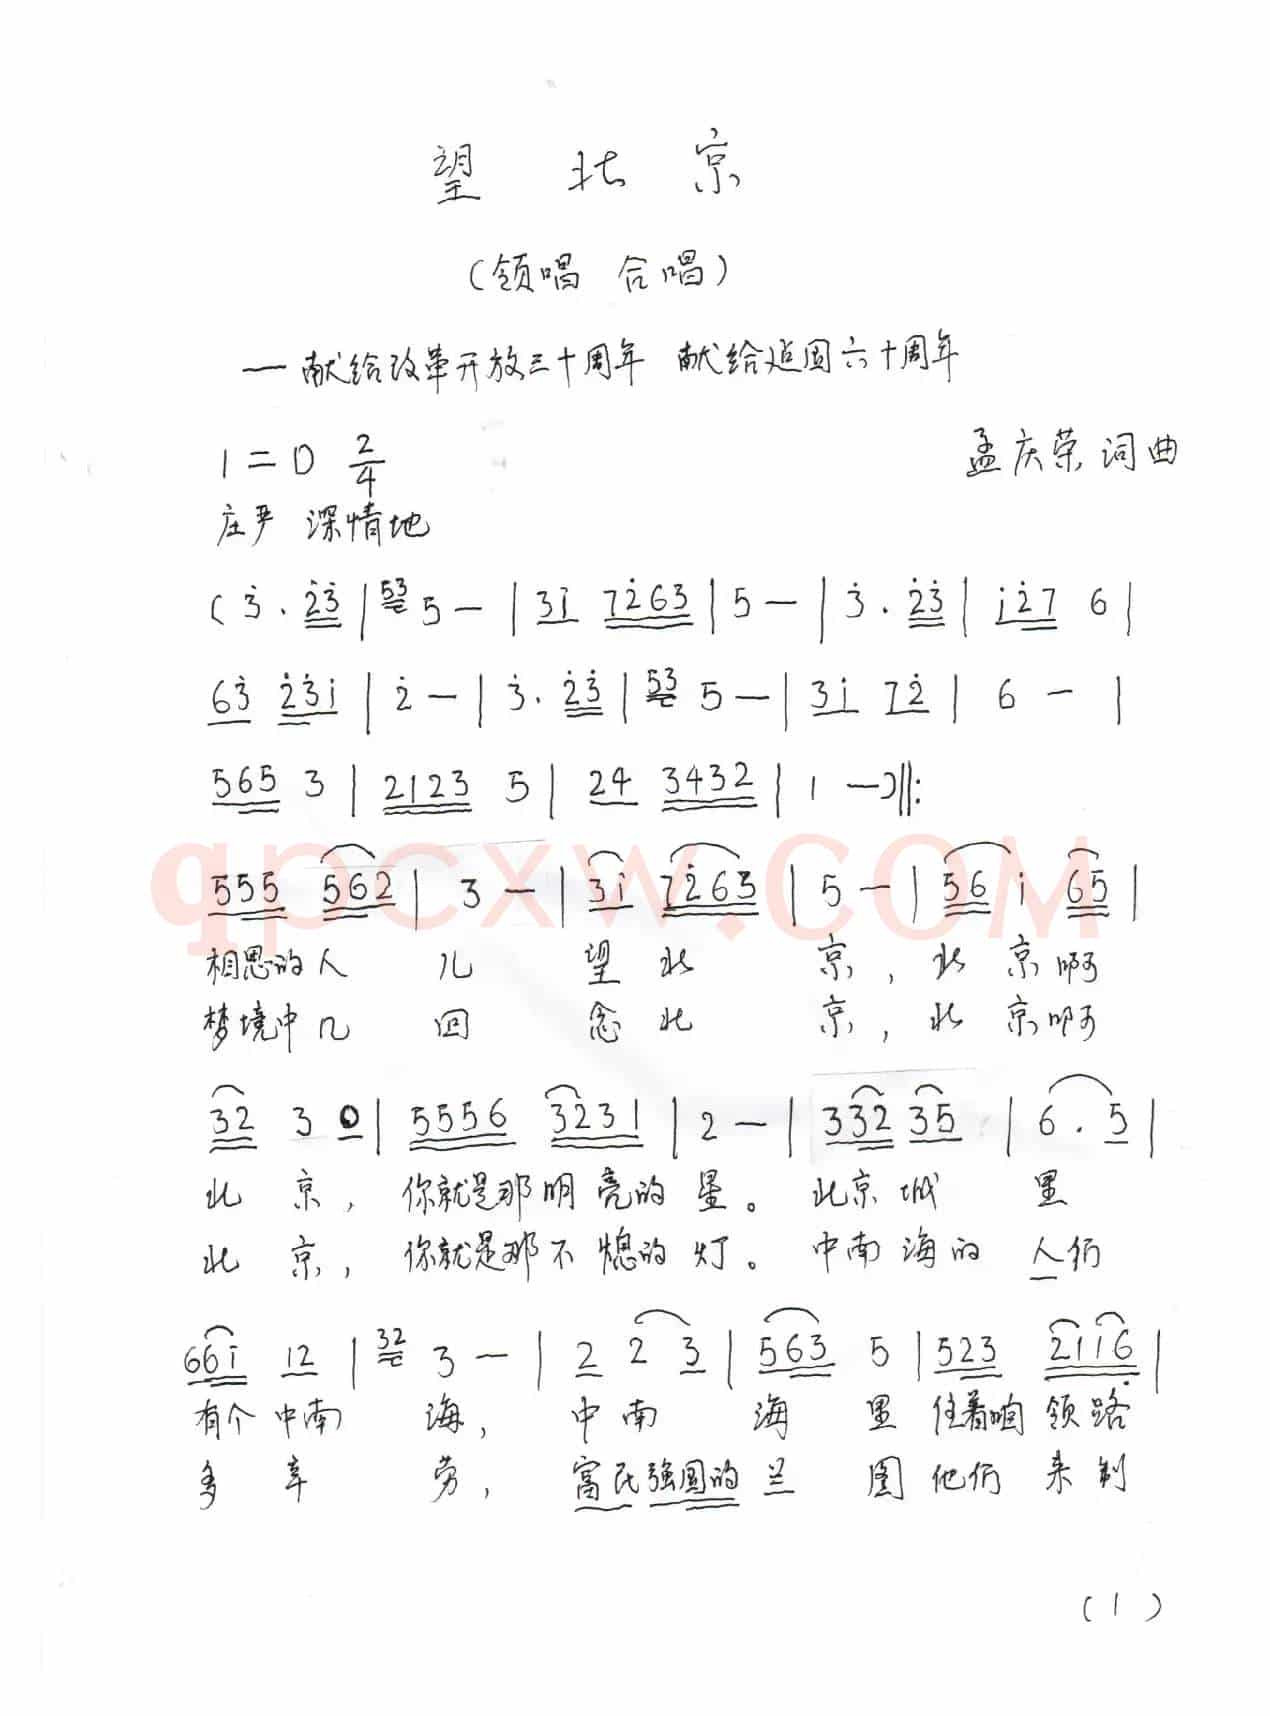 望 北 京
(领唱 合唱)
—献给改革开放三十周年 献给建国六十周年
1=D 2/4
孟庆荣 词曲
庄严 深情地
(3̇. 2̇3̇ | 53 5 — | 31̇ 72̇63 | 5 — | 3̇. 2̇3̇ | 1̇2̇7 6 |
63̇ 2̇3̇1̇ | 2̇ — | 3̇. 2̇3̇ | 53 5 — | 31̇ 72̇ | 6 — |
565 3 | 2123 5 | 24 3432 | 1 —)‖:
qpcxw.com
555 562 | 3 — | 31̇ 72̇63 | 5 — | 56 1̇ 65 |
相思的人 儿 望 北 京, 北 京啊
梦境中几 回 念 北 京, 北 京啊
32 3 0 | 5556 3231 | 2 — | 332 35 | 6. 5 |
北 京, 你就是那明 亮的 星。 北京 城 里
北 京, 你就是那不 熄的 灯。 中南 海的 人们
661̇ 12 | 32 3 — | 2 2 3 | 563 5 | 523 2116̣ |
有个 中南 海, 中 南 海 里 住着咱 领路
多 辛 劳, 富民强国的 兰 图 他们 来 制
(1)